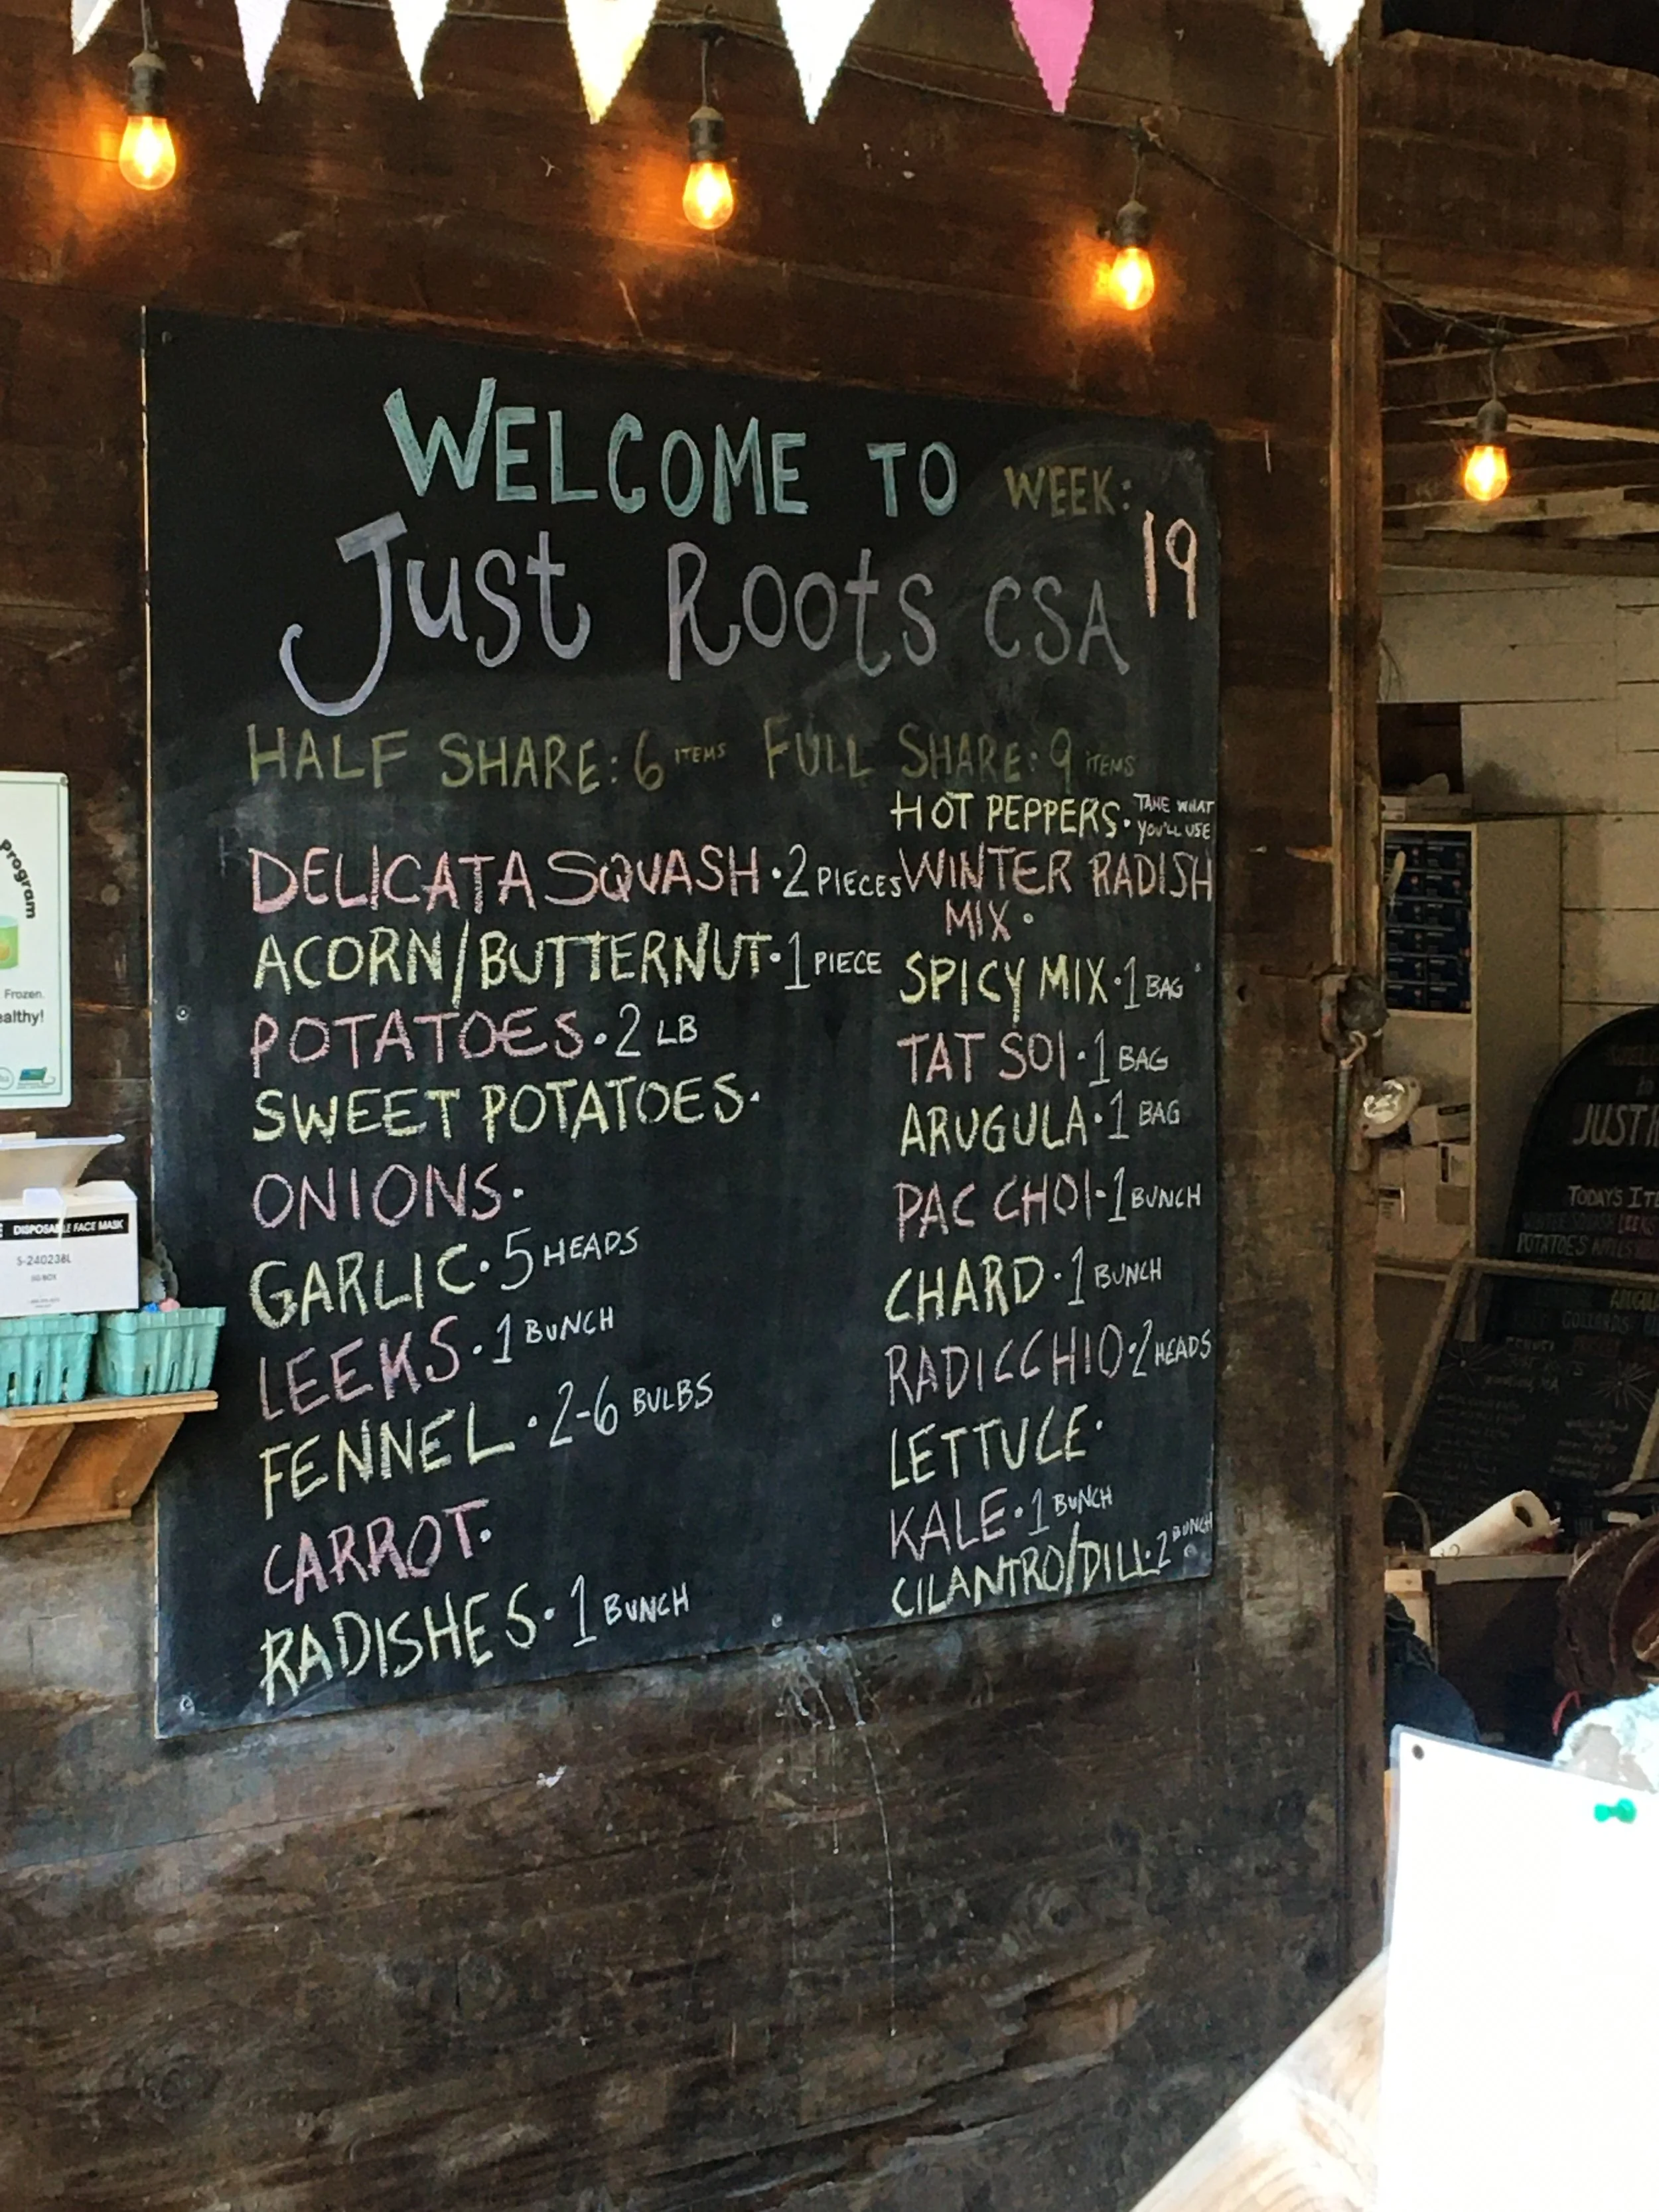 WELCOME TO WEEK:
19
Just Roots CSA
HALF SHARE: 6 ITEMS FULL SHARE: 9 ITEMS
DELICATA SQUASH · 2 PIECES
ACORN/BUTTERNUT · 1 PIECE
POTATOES · 2 LB
SWEET POTATOES ·
ONIONS ·
GARLIC · 5 HEADS
LEEKS · 1 BUNCH
FENNEL · 2-6 BULBS
CARROT ·
RADISHES · 1 BUNCH
HOT PEPPERS · TAKE WHAT
YOU'LL USE
WINTER RADISH
MIX ·
SPICY MIX · 1 BAG
TAT SOI · 1 BAG
ARUGULA · 1 BAG
PAC CHOI · 1 BUNCH
CHARD · 1 BUNCH
RADICCHIO · 2 HEADS
LETTUCE ·
KALE · 1 BUNCH
CILANTRO/DILL · 2 BUNCH
Program
Frozen.
ealthy!
DISPOSABLE FACE MASK
S-24023BL
JUST R
TODAY'S ITE
WINTER SQUASH LEEKS
POTATOES APPLES
COLLARDS